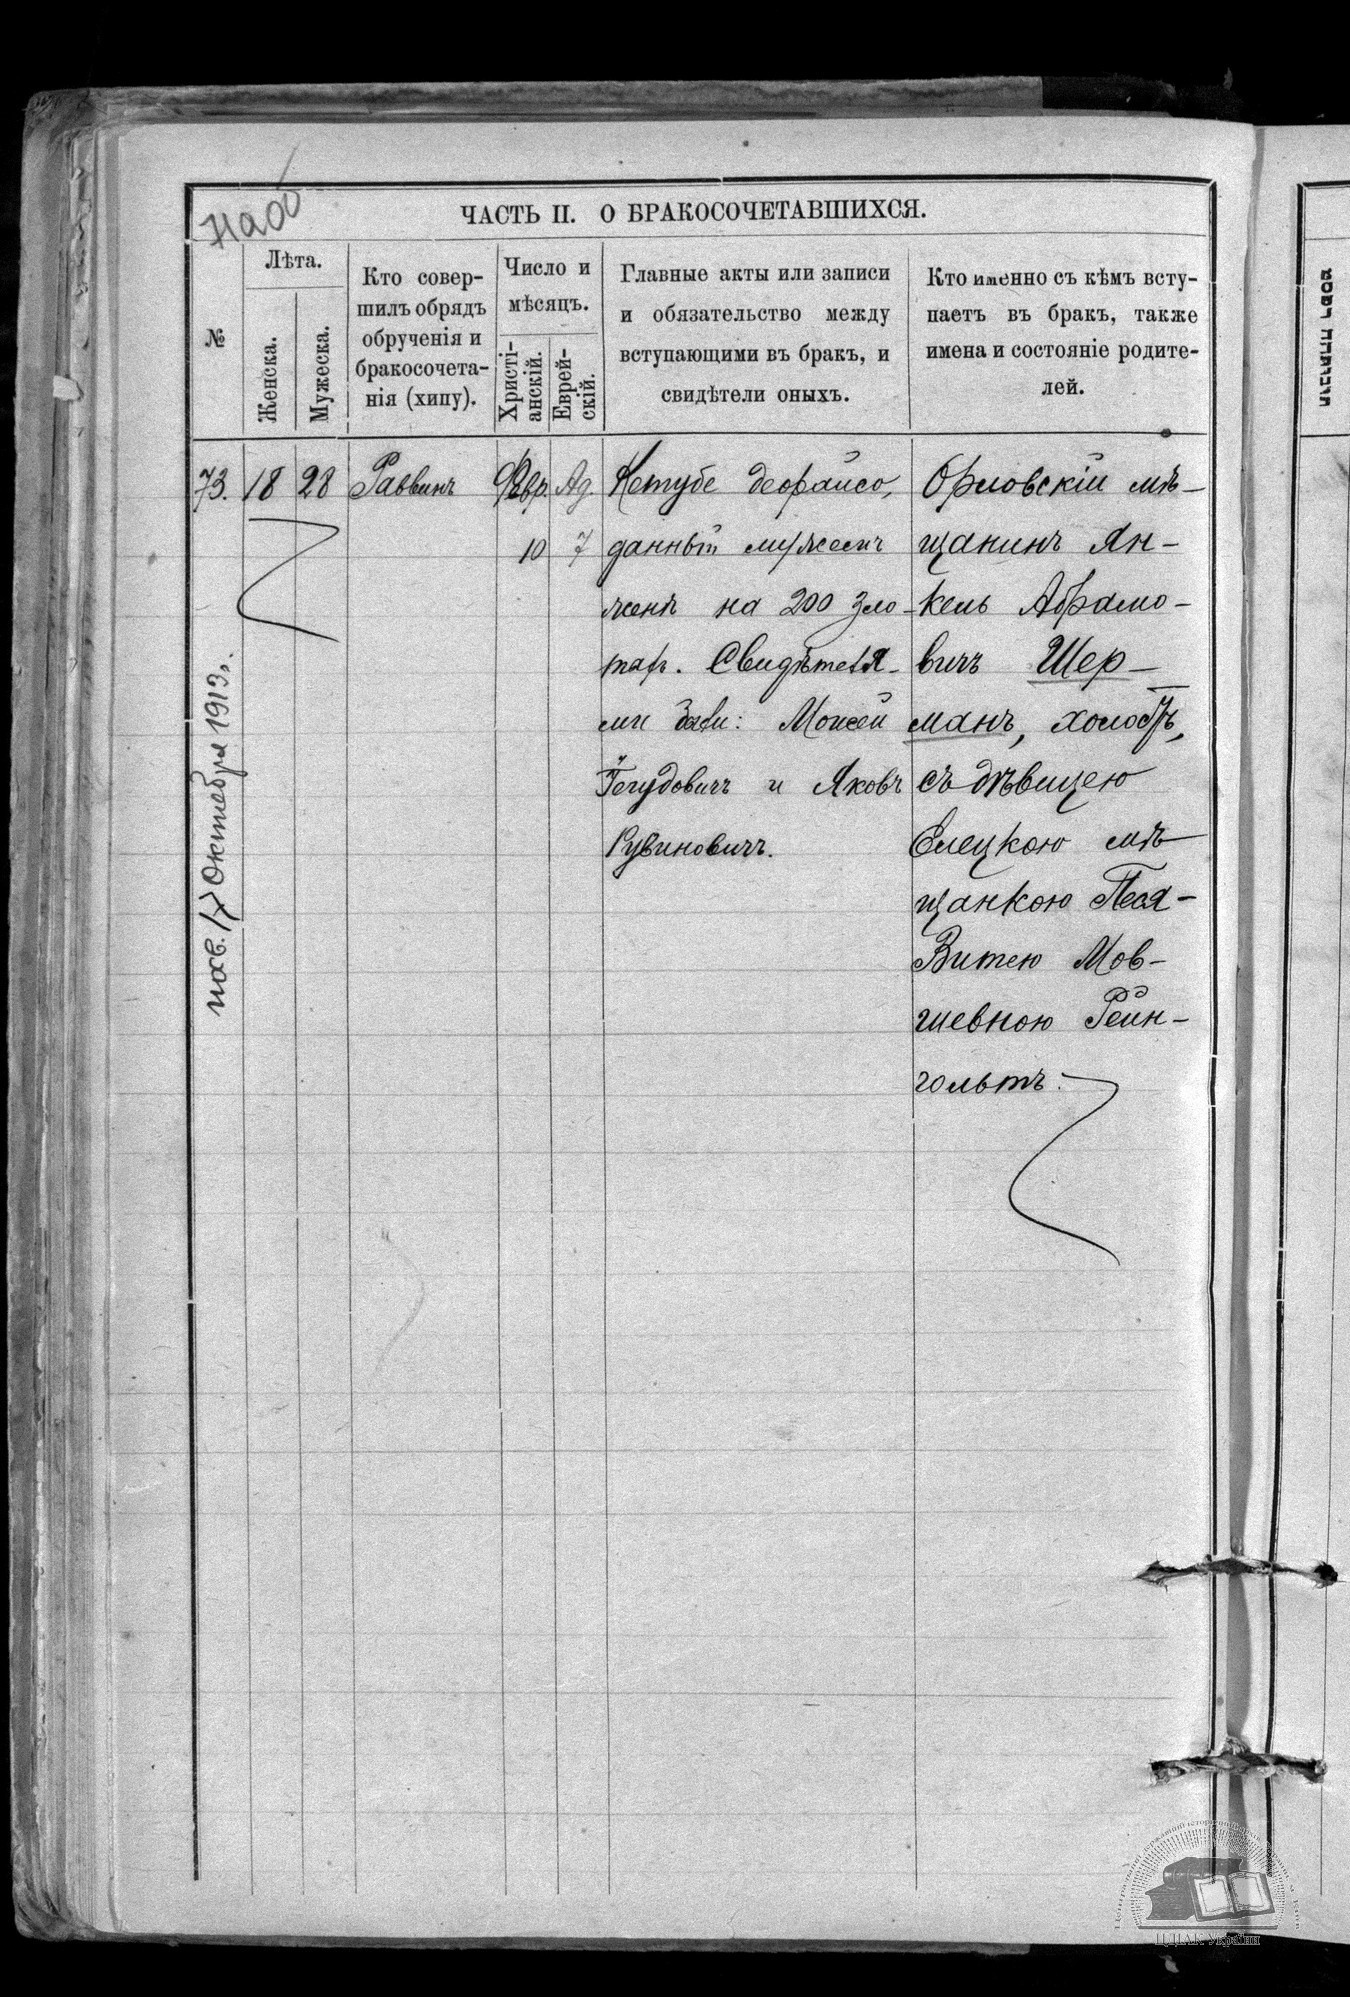 Наоб
ЧАСТЬ II. О БРАКОСОЧЕТАВШИХСЯ.
№
Лѣта.
Женска.
Мужеска.
Кто совер-
шилъ обрядъ
обрученія и
бракосочета-
нія (хипу).
Число и
мѣсяцъ.
Христі-
анскій.
Еврей-
скій.
Главные акты или записи
и обязательство между
вступающими въ брак, и
свидѣтели оныхъ.
Кто именно съ кѣмъ всту-
паетъ въ бракъ, также
имена и состояніе родите-
лей.
73. 18 28 Раввинъ Февр. Ад.
10 7
Кетубе деорайсо,
данный мужемъ
женѣ на 200 зло-
тыхъ. Свидѣтеля-
ми были: Моисей
Іегудовичъ и Яковъ
Рувиновичъ.
Орловскій мѣ-
щанинъ Ян-
кель Абрамо-
вичъ Шер-
манъ, холостъ,
съ дѣвицею
Елецкою мѣ-
щанкою Песя-
Витею Мов-
шевною Рейн-
гольтъ.
17 Октября 1913г.
ЦДІАК України